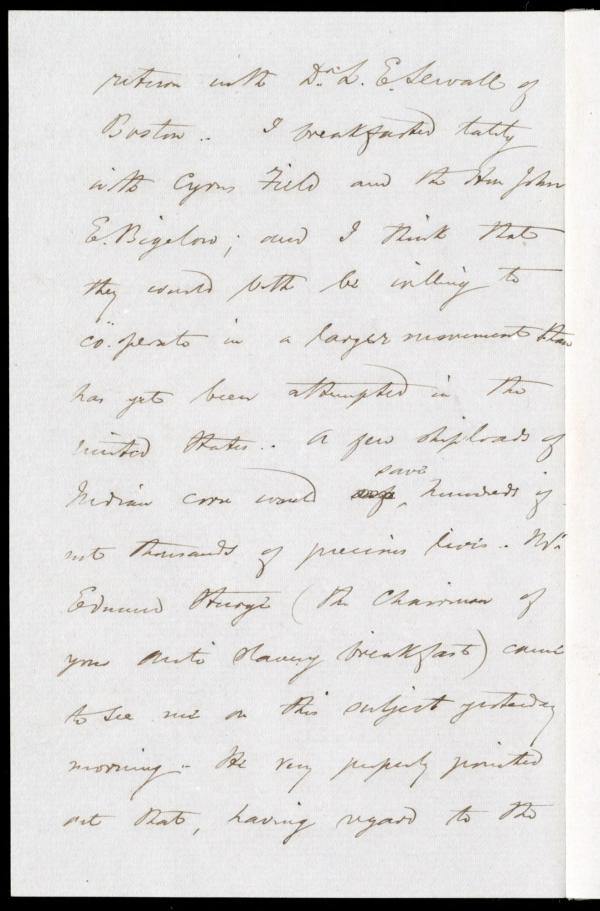 return with Dr. L. E. Sewall of
Boston.. I breakfasted lately
with Cyrus Field and the Hon John
E. Bigelow; and I think that
they would both be willing to
co-operate in a larger movement than
has yet been attempted in the
United States.. A few shiploads of
Indian corn would save hundreds if
not thousands of precious lives.. Mr.
Edmund Sturge (the Chairman of
your Anti Slavery breakfast) came
to see me on this subject yesterday
morning.. He very properly pointed
out that, having regard to the